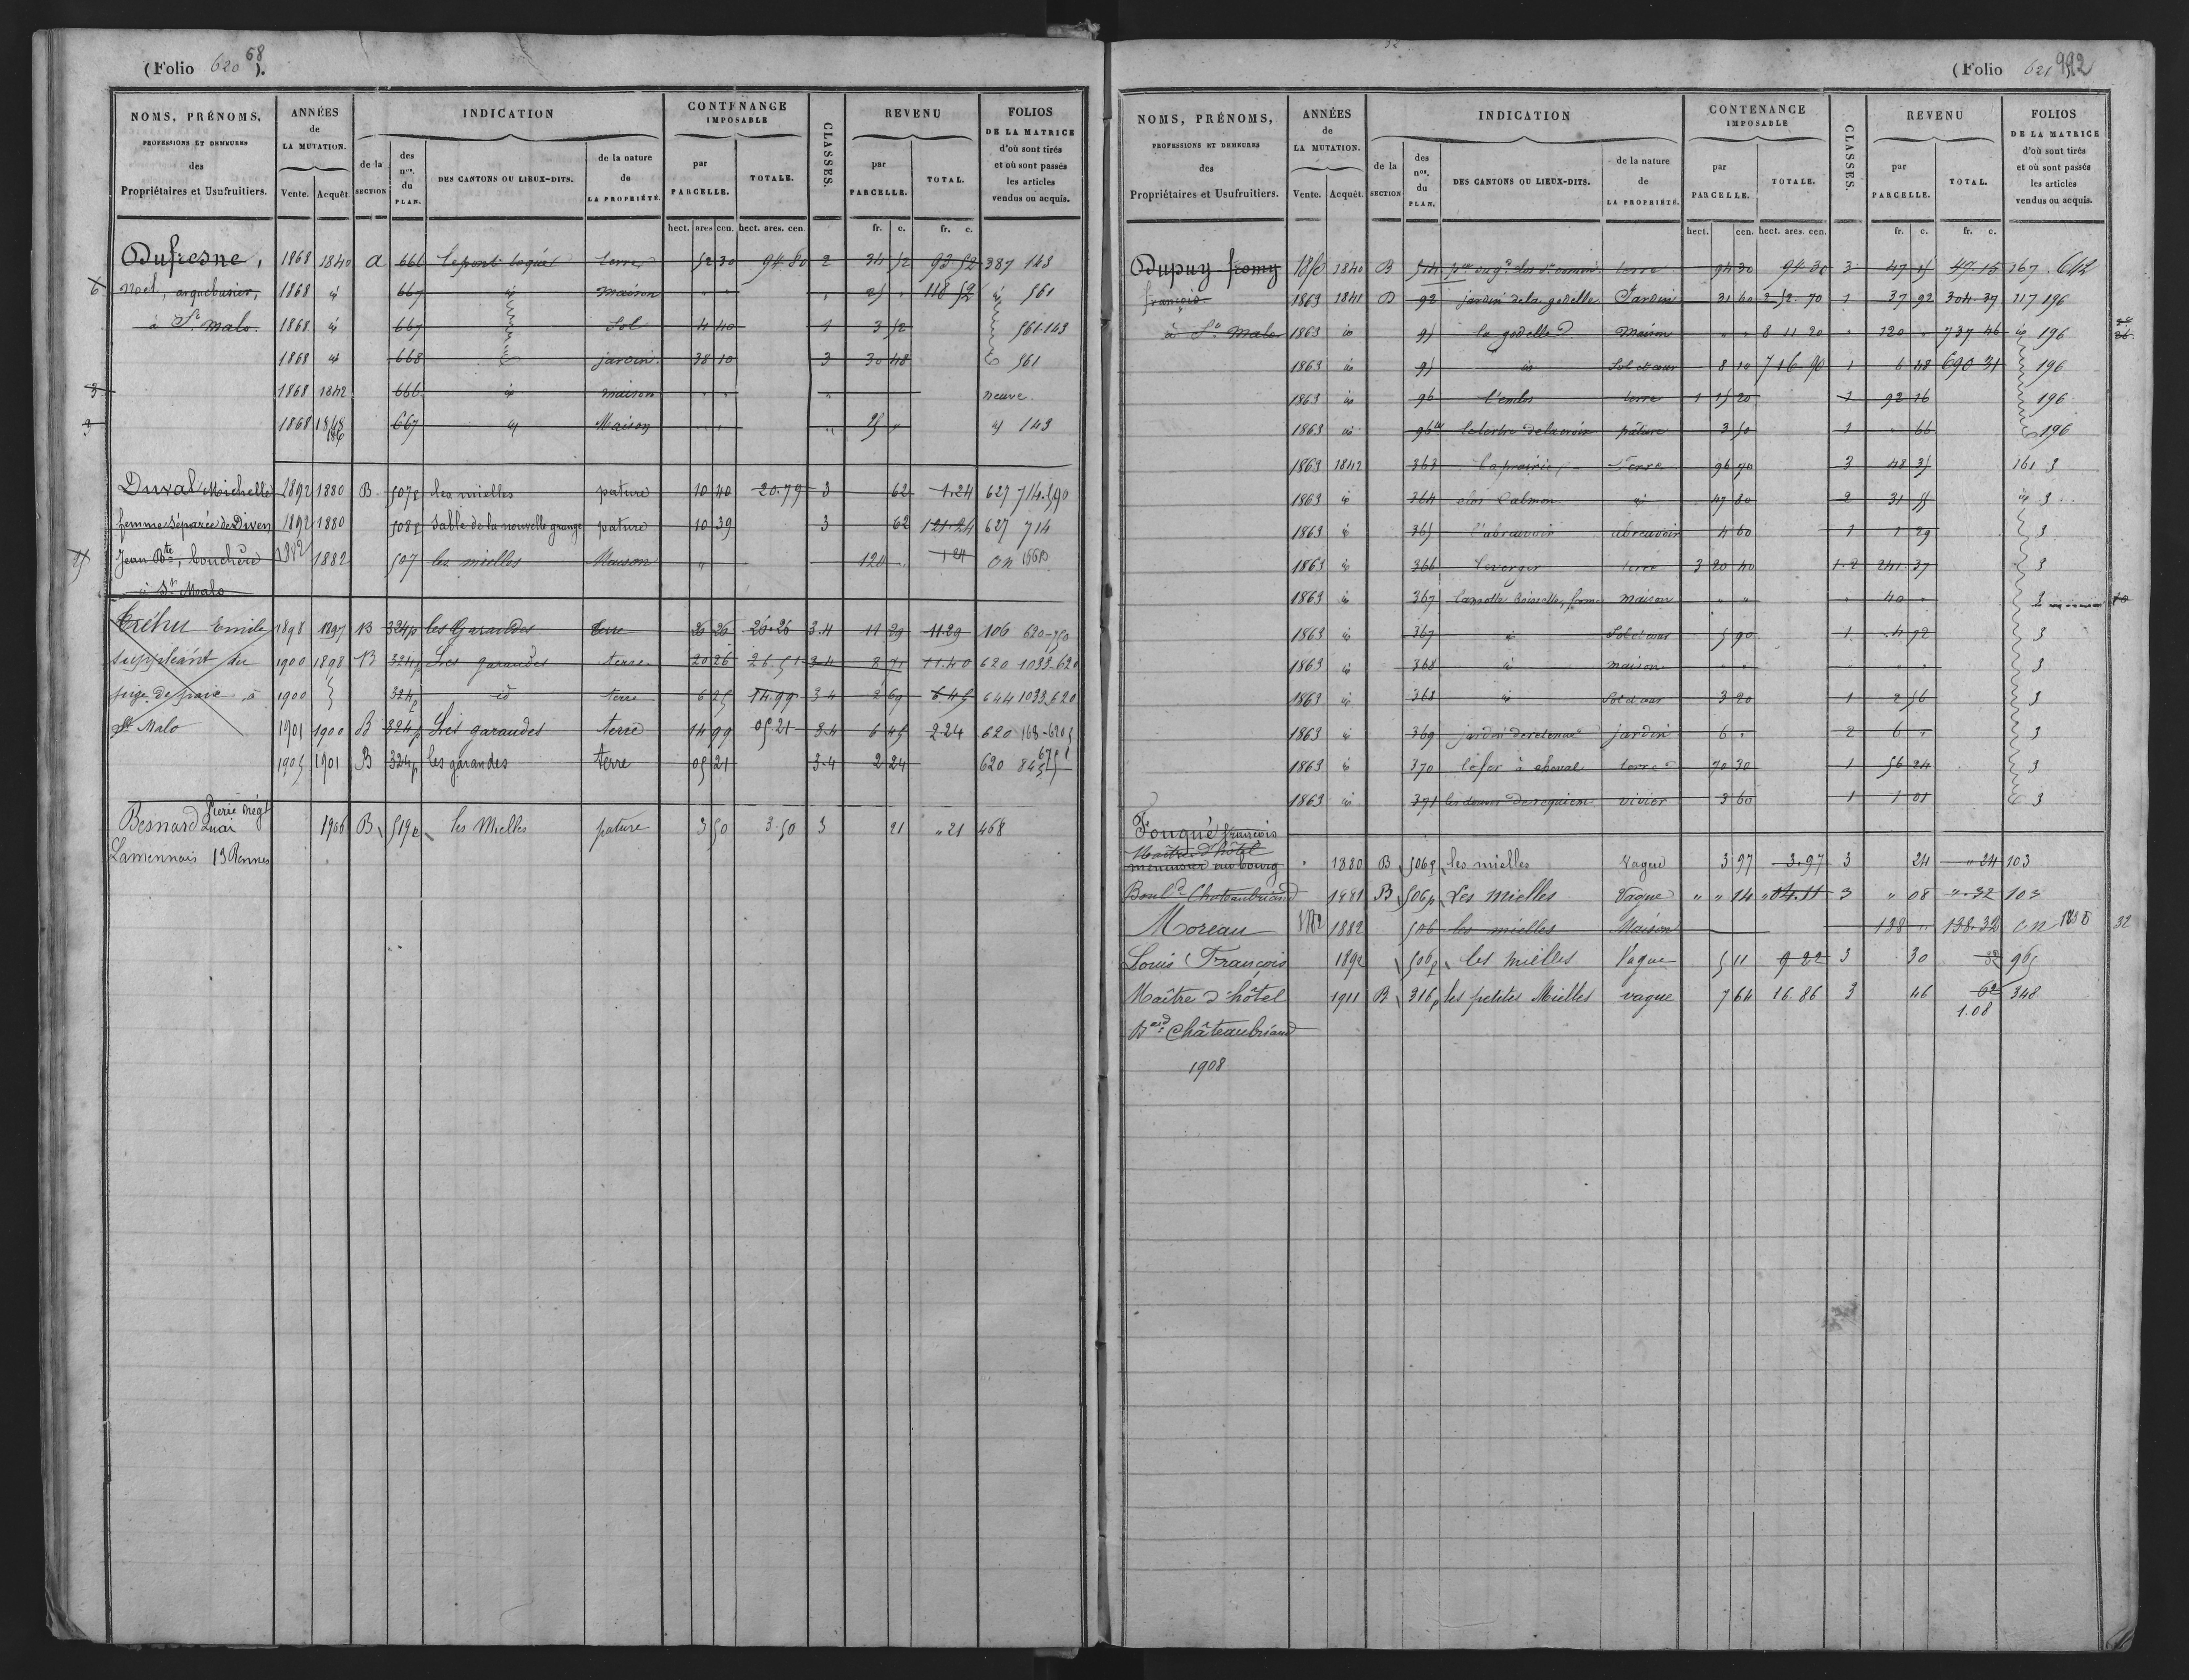 (Folio 620 68).
NOMS, PRÉNOMS, PROFESSIONS ET DEMEURES des Propriétaires et Usufruitiers.
ANNÉES de LA MUTATION. Vente. Acquêt.
INDICATION de la SECTION des nos. du PLAN. DES CANTONS OU LIEUX-DITS. de la nature de LA PROPRIÉTÉ.
CONTENANCE IMPOSABLE par PARCELLE. TOTALE.
CLASSES.
REVENU par PARCELLE. TOTAL.
FOLIOS DE LA MATRICE d'où sont tirés et où sont passés les articles vendus ou acquis.
hect. ares cen. hect. ares. cen. fr. c. fr. c.
Dufresne, 1868 1840 a 666 le pont toqué terre 52 30 94 80 2 34 52 93 52 387 143
6 Noel, arquebusier, 1868 id 667 id maison " " " 25 " 118 52 id 561
à St. Malo. 1868 id 667 Sol 4 40 1 3 52 561.143
1868 id 668 jardin 38 10 3 30 48 561
3 1868 1842 666 id maison " " " neuve.
3 1868 1848 667 id Maison " " " 25 " id 143
Duval Michelle 1892 1880 B. 507p les mielles pature 10 40 20.79 3 62 1.24 627 714.590
femme séparée de Diven 1892 1880 508p Sable de la nouvelle grange pature 10 39 3 62 121.24 627 714
Jean Bte, 1882 1882 507 les mielles Maison " 120 . 1 24 CN
à St. Malo
Tréhu Emile 1898 1897 B 324p les Garandes terre 26 26 26.26 3.4 11 29 11.29 106 620-750
suppléant du 1900 1898 B 324p Les garandes terre 20 26 26.51 3.4 8 71 11.40 620 1033.620
juge de paix à 1900 324p id terre 6 25 14.99 3.4 2 69 6.45 644 1033.620
St Malo 1901 1900 B 324p Les garandes terre 14 99 05 21 3.4 6 45 2.24 620 168-620
1905 1901 B 324p les garandes terre 05 21 3.4 2 24 620 845
Besnard Pierre négt Quai 1906 B 519p les Mielles pature 3 50 3.50 3 21 " 21 468
Lamennais 13 Rennes
(Folio 621 992
NOMS, PRÉNOMS, PROFESSIONS ET DEMEURES des Propriétaires et Usufruitiers.
ANNÉES de LA MUTATION. Vente. Acquêt.
INDICATION de la SECTION des nos. du PLAN. DES CANTONS OU LIEUX-DITS. de la nature de LA PROPRIÉTÉ.
CONTENANCE IMPOSABLE par PARCELLE. TOTALE.
CLASSES.
REVENU par PARCELLE. TOTAL.
FOLIOS DE LA MATRICE d'où sont tirés et où sont passés les articles vendus ou acquis.
hect. cen. hect. ares. cen. fr. c. fr. c.
Dupuy fromy 1840 B 514 terre 94 30 94 30 3 47 15 47.15 367 642
françois 1863 1841 D 92 jardin de la godelle Jardin 31 60 2 52 70 1 37 92 304.37 117 196
à St. Malo 1863 id 95 la godelle maison " " 8 11 20 " 120 " 737 46 id 196
1863 id 95 id Sol et cour 8 10 7 16 90 1 6 48 690 31 196
1863 id 96 l'enclos terre 1 15 20 1 92 16 196
1863 id 96bis le tertre de la croix pâture 3 50 1 " 66 196
1863 1842 363 la prairie Terre 96 70 3 48 35 161 3
1863 id 364 clos Calmon id 47 80 2 31 55 id 3
1863 id 365 l'abreuvoir abreuvoir 4 60 1 1 29 3
1863 id 366 le verger terre 3 20 40 1.2 241 37 3
1863 id 367 maison " " " 40 " 3
1863 id 367 id Sol et cour 5 90 1 4 72 3
1863 id 368 id maison " " " " " 3
1863 id 368 id Sol et cour 3 20 1 2 56 3
1863 id 369 jardin de retenue jardin 6 " 2 6 " 3
1863 id 370 le fer à cheval terre 70 30 1 56 24 3
1863 id 371 les douves de requiem vivier 3 60 1 1 01 3
Fouqué François
Maître d'hôtel
menuisier au bourg " 1880 B 506p les mielles Vague 3 97 3.97 3 24 " 24 103
Bould Chateaubriand 1881 B 506p Les mielles Vague " " 14 " 04.11 3 " 08 ".32 103
Moreau 1882 1882 506 les mielles Maison 138 " 138.32 CN 32
Louis François 1892 506p les mielles Vague 5 11 9 22 3 30 32 965
Maître d'hôtel 1911 B 316p les petites Mielles vague 7 64 16.86 3 46 62 348
1.08
Bard Châteaubriand
1908